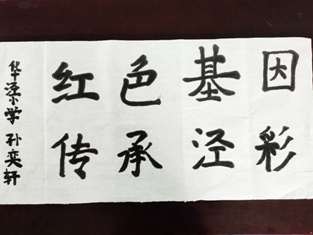 红色基因
传承泾彩
华泾小学 孙奕轩